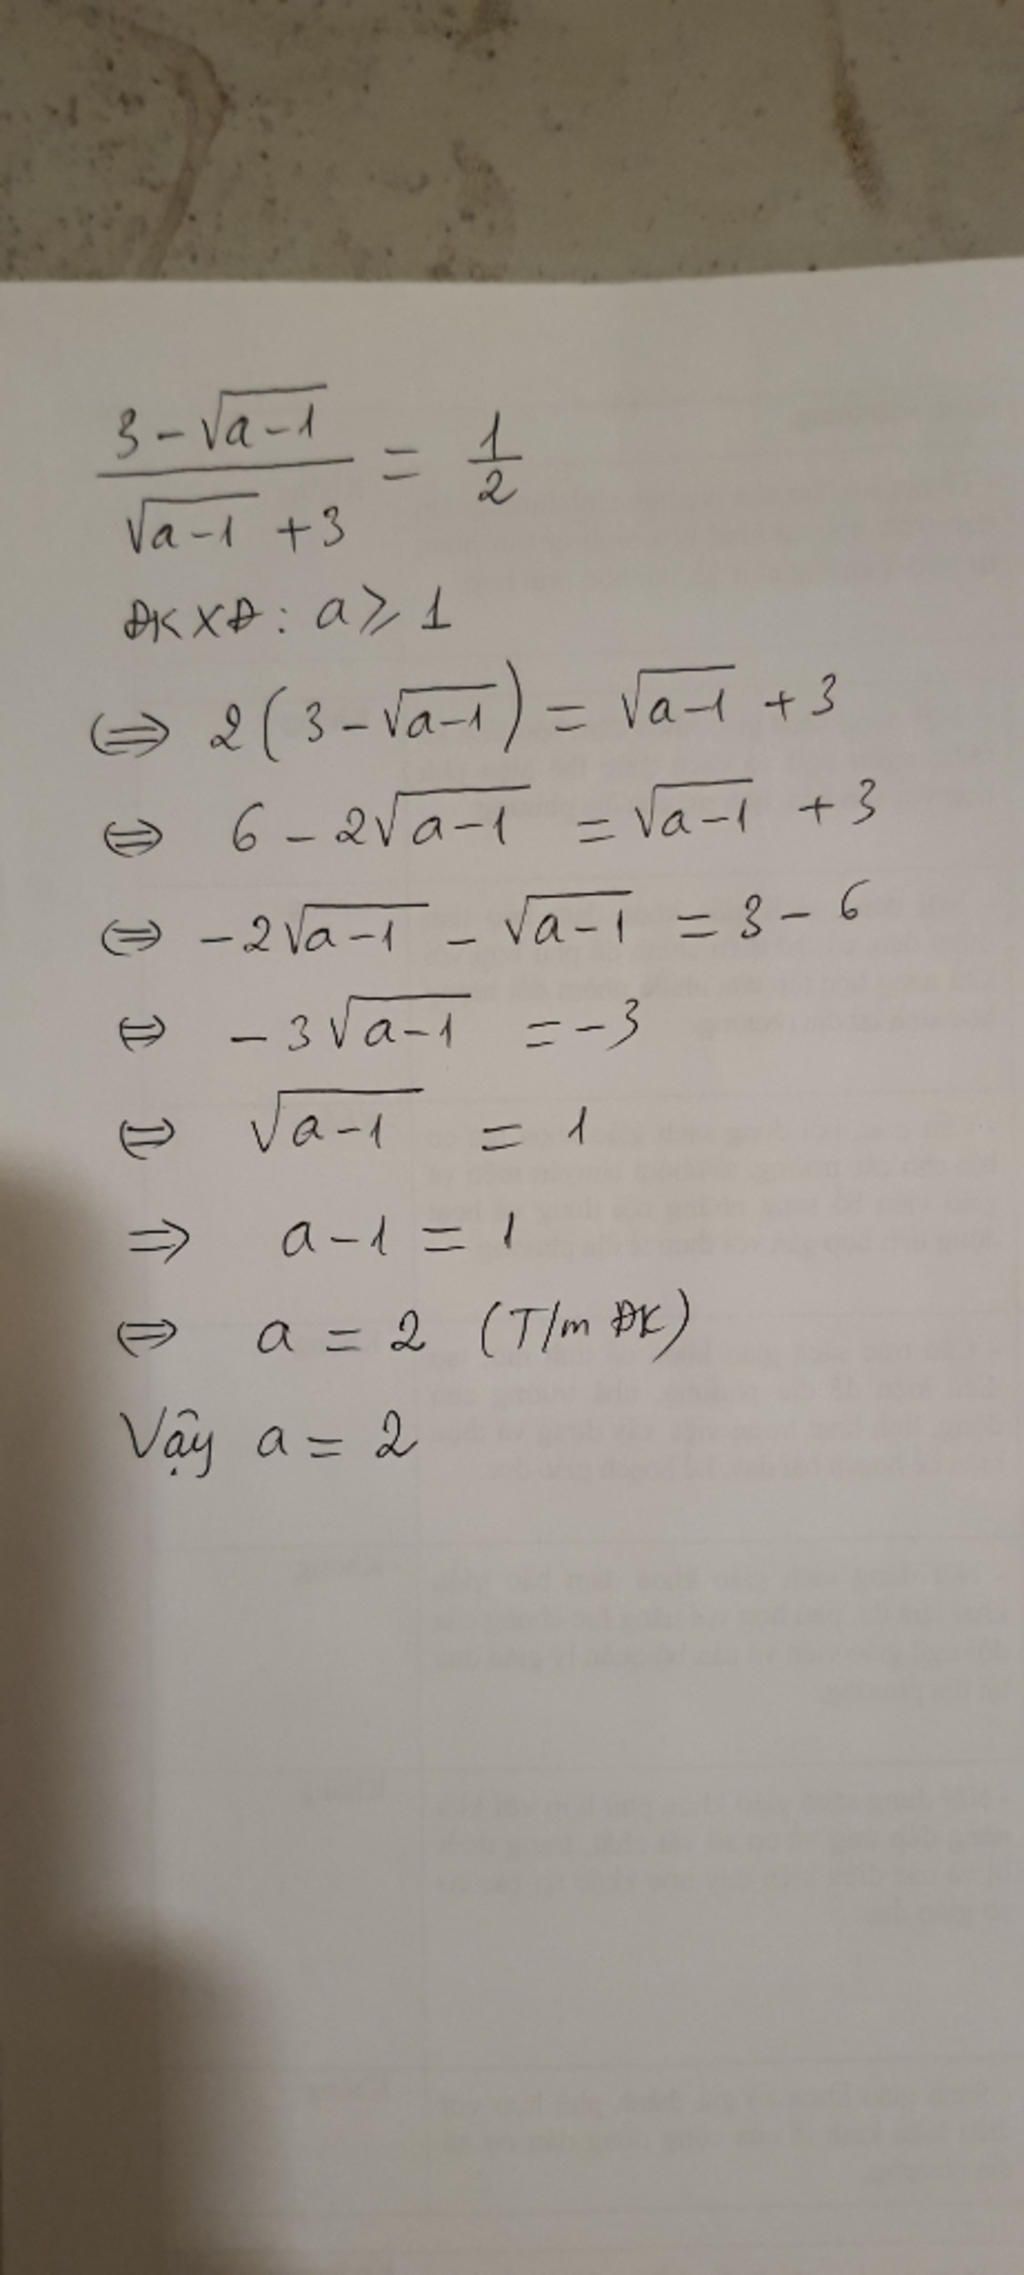 3 - √(a-1) / √(a-1) + 3 = 1/2
ĐKXĐ: a ≥ 1
⇔ 2(3 - √(a-1)) = √(a-1) + 3
⇔ 6 - 2√(a-1) = √(a-1) + 3
⇔ -2√(a-1) - √(a-1) = 3 - 6
⇔ -3√(a-1) = -3
⇔ √(a-1) = 1
⇒ a - 1 = 1
⇔ a = 2 (T/m ĐK)
Vậy a = 2